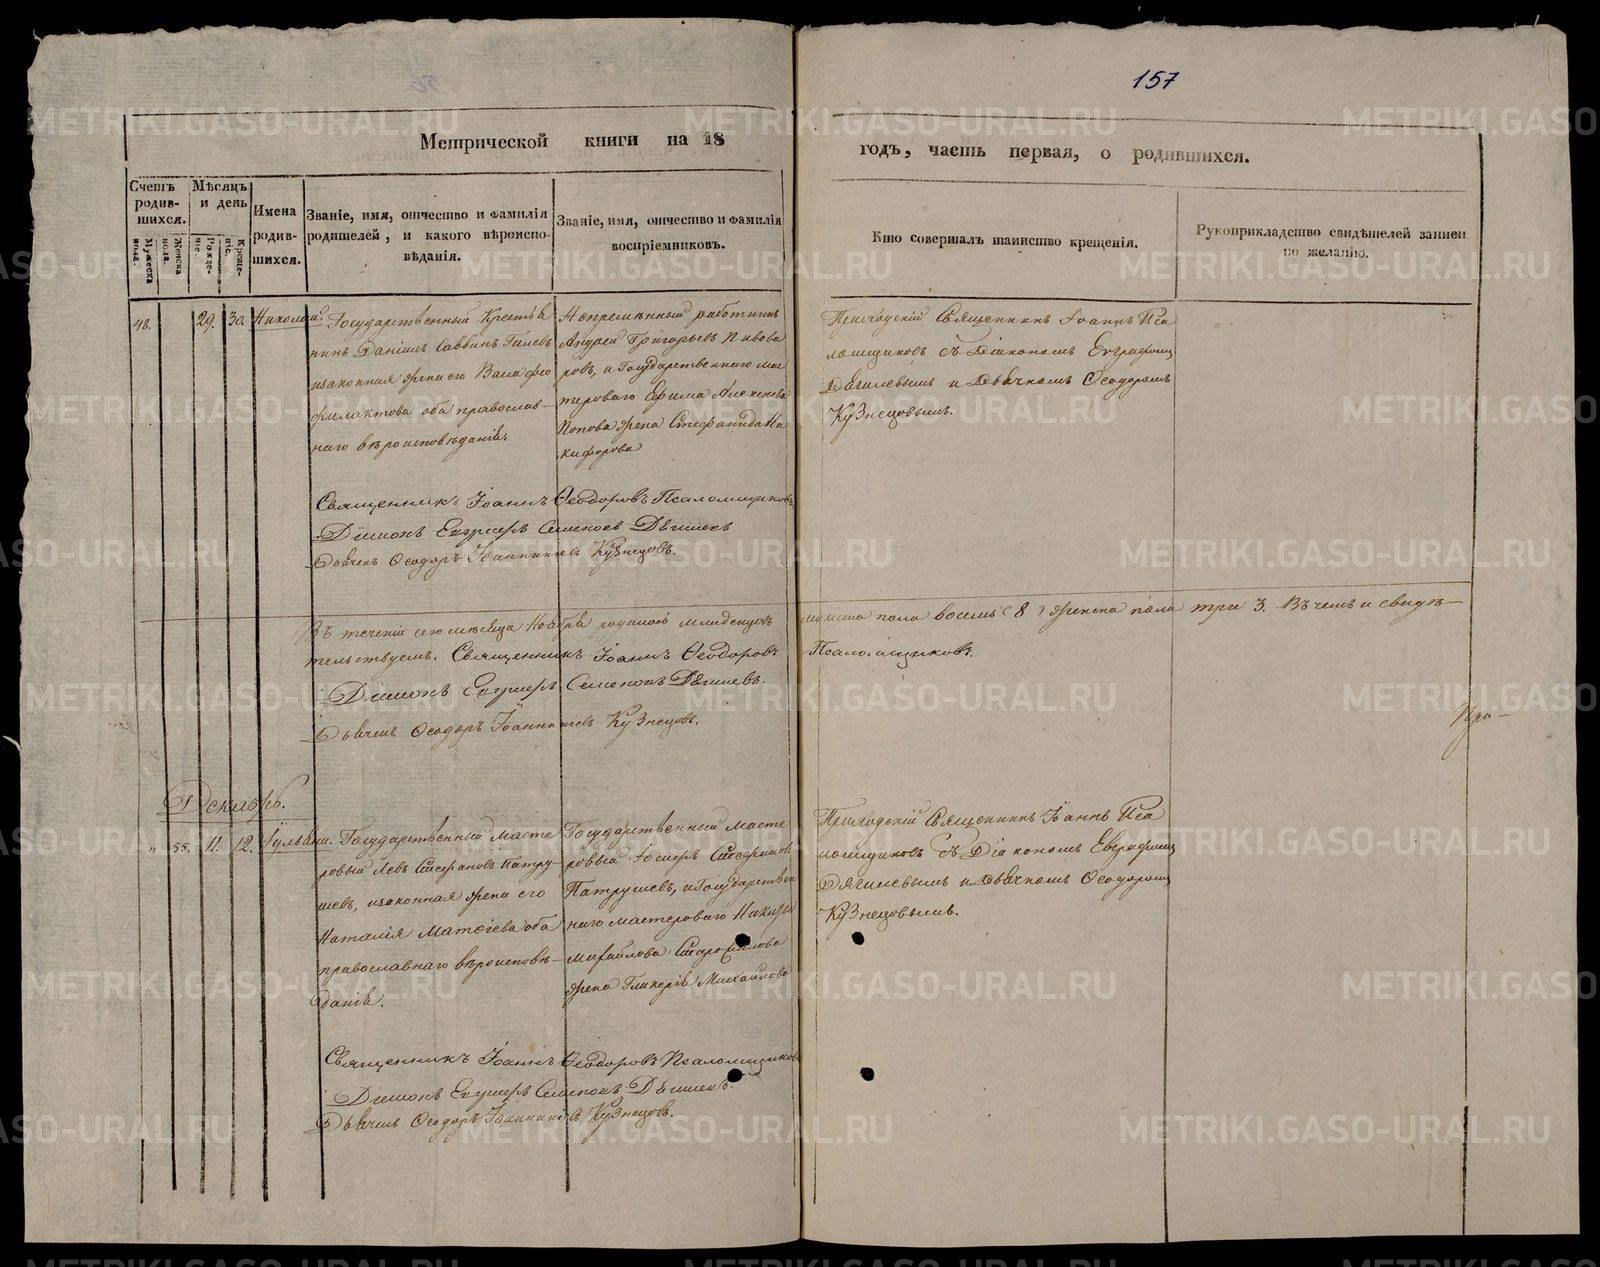 157
Метрической книги на 18
годъ, часть первая, о родившихся.
Счетъ родив-шихся.
Мужеска пола.
Женска пола.
Мѣсяцъ и день
Рожде-нія.
Креще-нія.
Имена родив-шихся.
Званіе, имя, отчество и фамилія
родителей, и какого вѣроиспо-
вѣданія.
Званіе, имя, отчество и фамилія
воспріемниковъ.
Кто совершалъ таинство крещенія.
Рукоприкладство свидѣтелей записи
по желанію.
48. 29. 30. Николай.
Государственный Крестья
нинъ Даніилъ Саввинъ Гилевъ
и законная жена его
оба православ-
наго вѣроисповѣданія.
Непремѣнный работникъ
Андрей Григорьевъ Пивова
ровъ, и Государственнаго мас
тероваго Ефима Алексѣева
Попова жена Стефанида Ни
кифорова
Приходскій Священникъ Іоаннъ Пса
ломщиковъ съ Діакономъ Евграфомъ
Дягилевымъ и Дьячкомъ Ѳеодоромъ
Кузнецовымъ.
Священникъ Іоаннъ Ѳеодоровъ Псаломщиковъ
Діаконъ Евграфъ Семеновъ Дягилевъ
Дьячекъ Ѳеодоръ Іоанникіевъ Кузнецовъ.
Въ теченіи сего мѣсяца Ноября родилось младенцовъ мужеска пола восемь (8) женска пола три 3. Въ чемъ и свидѣ-
тельствуемъ. Священникъ Іоаннъ Ѳеодоровъ Псаломщиковъ.
Діаконъ Евграфъ Семеновъ Дягилевъ.
Дьячекъ Ѳеодоръ Іоанникіевъ Кузнецовъ.
Декабрь.
55. 11. 12. Іуліаніи.
Государственный Масте
ровый Левъ Стефановъ Патру-
шевъ, и законная жена его
Наталія Матѳіева оба
православнаго вѣроисповѣ-
данія.
Государственный масте
ровый Іосифъ Стефановъ
Патрушевъ, и Государствен
наго мастероваго
Михайлова
жена Гликерія Михайлова
Приходскій Священникъ Іоаннъ Пса
ломщиковъ съ Діакономъ Евграфомъ
Дягилевымъ и Дьячкомъ Ѳеодоромъ
Кузнецовымъ.
Священникъ Іоаннъ Ѳеодоровъ Псаломщиковъ
Діаконъ Евграфъ Семеновъ Дягилевъ.
Дьячекъ Ѳеодоръ Іоанникіевъ Кузнецовъ.
METRIKI.GASO-URAL.RU